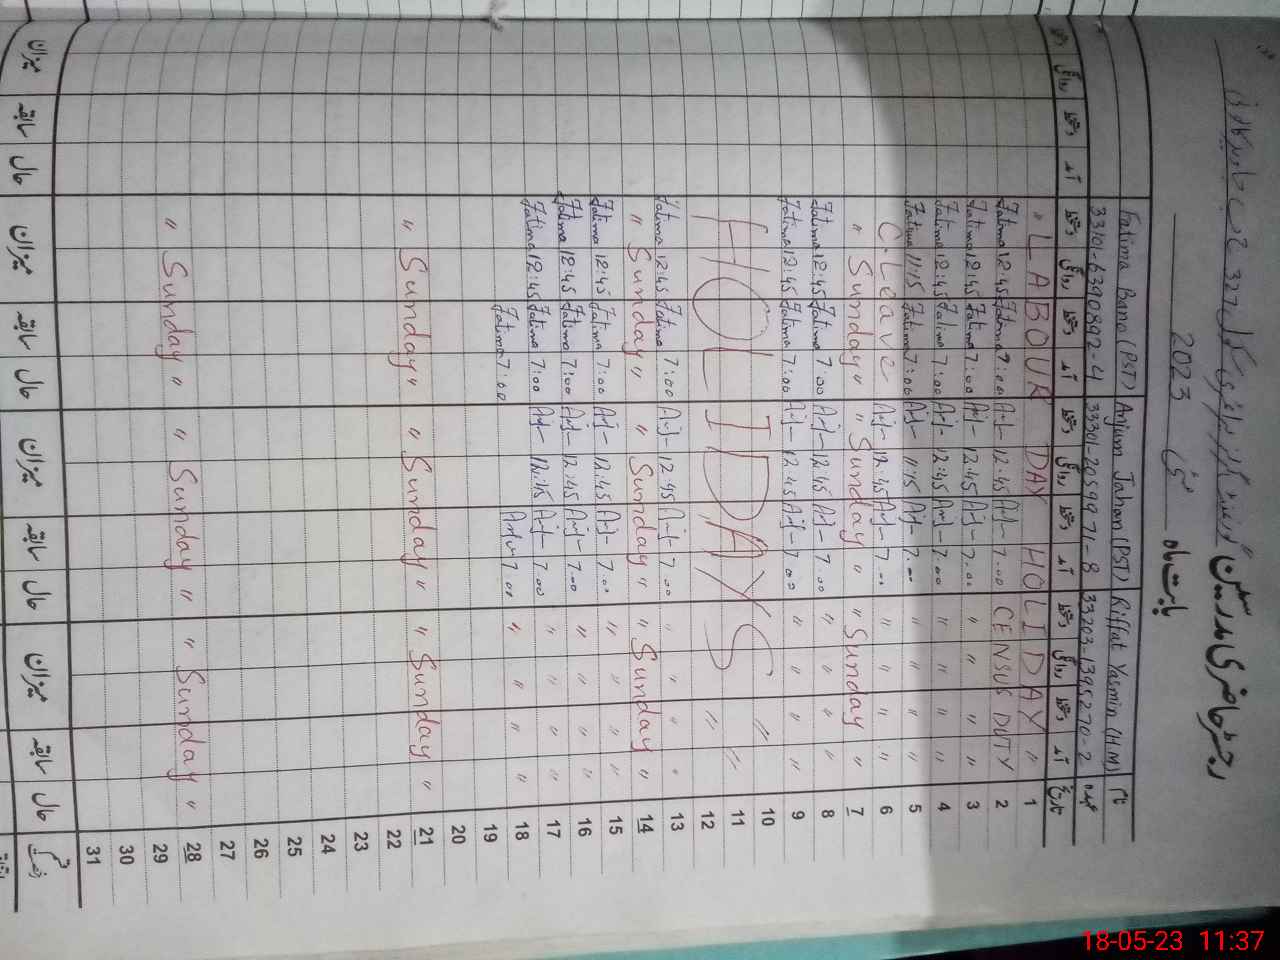 رجسٹر حاضری مدرسین
بابت ماہ مئی 2023
نام Riffat Yasmin (H.M) Anjum Jahan (PST) Fatima Bano (PST)
عہدہ 33203-1395270-2 33301-2059971-8 33101-6390892-4
تاریخ آمد دستخط روانگی دستخط آمد دستخط روانگی دستخط آمد دستخط روانگی دستخط آمد دستخط روانگی دستخط
1 " LABOUR DAY HOLIDAY "
2 CENSUS DUTY 7.00 12:45 7:00 Fatima 12:45 Fatima
3 " " " " 7.00 12:45 7:00 Fatima 12:45 Fatima
4 " " " " 7.00 12:45 7:00 Fatima 12:45 Fatima
5 " " " " 7.00 11:15 7:00 Fatima 11:15 Fatima
6 " " " " 7.00 12:45 C.Leave
7 " Sunday " " Sunday " " Sunday "
8 " " " " 7.00 12:45 7:00 Fatima 12:45 Fatima
9 " " " " 7.00 12:45 7:00 Fatima 12:45 Fatima
10
11 HOLIDAYS " " " "
12
13 " " " " 7.00 12:45 7:00 Fatima 12:45 Fatima
14 " Sunday " " Sunday " " Sunday "
15 " " " " 7.00 12:45 7:00 Fatima 12:45 Fatima
16 " " " " 7.00 12:45 7:00 Fatima 12:45 Fatima
17 " " " " 7.00 12:45 7:00 Fatima 12:45 Fatima
18 " " " " 7.00 7:00 Fatima
19
20
21 " Sunday " " Sunday " " Sunday "
22
23
24
25
26
27
28 " Sunday " " Sunday " " Sunday "
29
30
31
حال سابقہ میزان حال سابقہ میزان حال سابقہ میزان حال سابقہ میزان
18-05-23 11:37